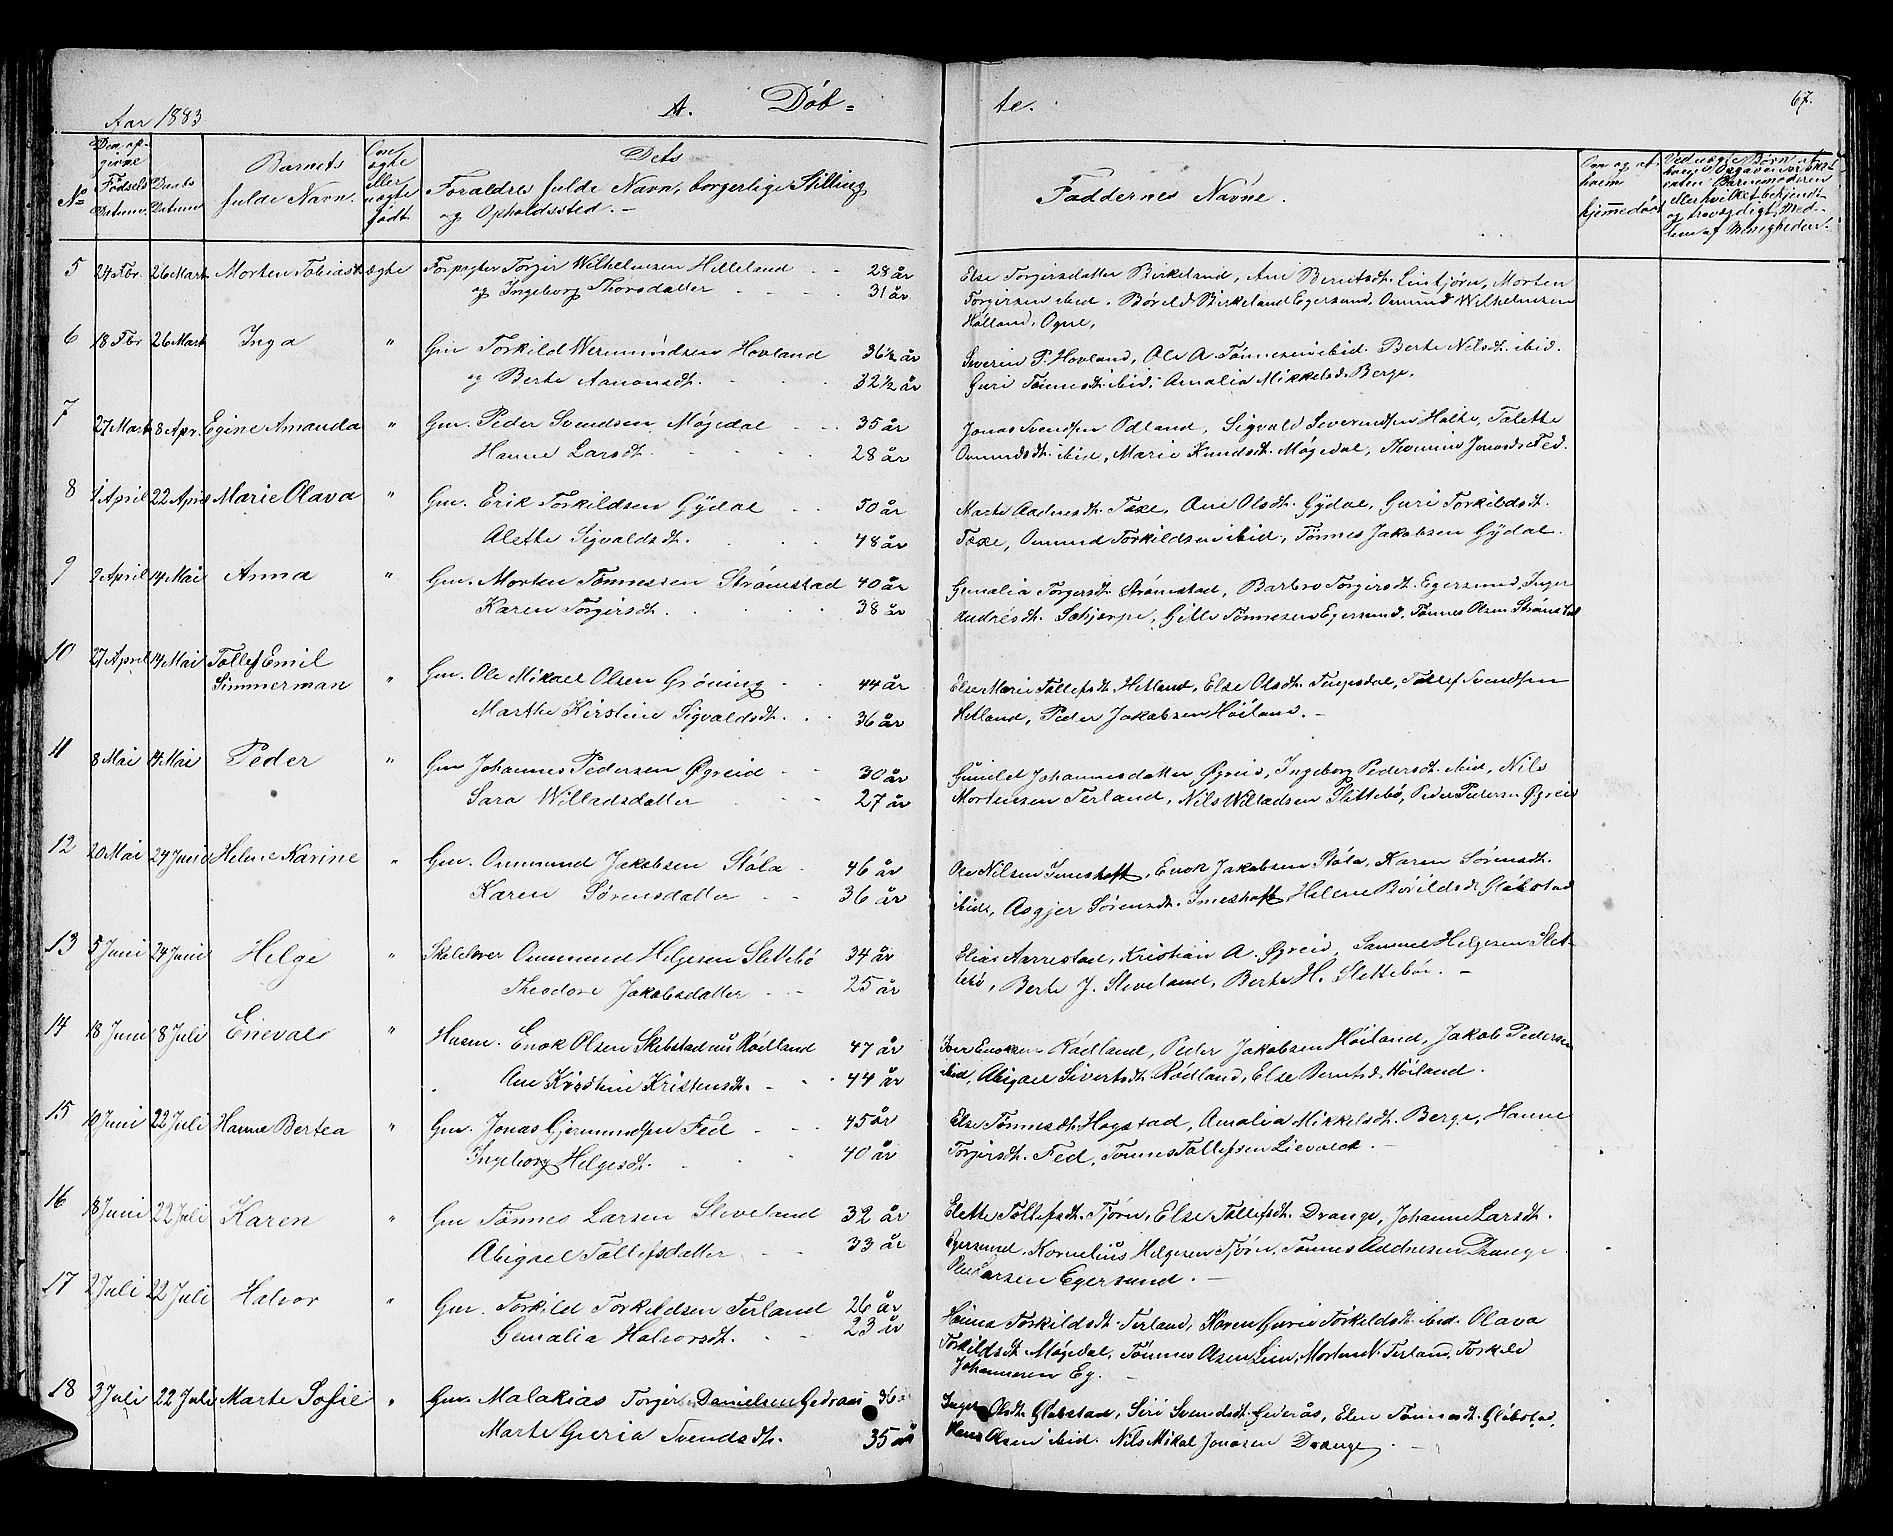 Aar 1883 A. Døb-
te. 67.
No
Den op-
givne
Fødsels
Datum.
Daabs
Datum
Barnets
fulde Navn.
Om
ægte
eller
uægte
født
Dets
Forældres fulde Navn, borgerlige Stilling
og Opholdssted. -
Faddernes Navne.
Om og af
hvem
hjemmedøbt
5 24 Fbr. 26 Mart Morten Tobias ægte Forpagter Torger Wilhelmsen Helleland 28 år
og Ingeborg Thorsdatter 31 år
Else Torgersdatter Birkeland, Ane Berntsdt. Lintjørn, Morten
Torgersen ibid. Børild Birkeland Egersund, Omund Wilhelmsen
Hølland, Ogne,
6 18 Fbr 26 Mart Inga " Gm Torkild Weremundsen Hovland 36½ år
og Berte Aanonsdt. 32½ år
Severin P. Hovland, Ole A. Tønnesen ibid. Berte Nilsdt. ibid.
Guri Tønnesdt. ibid, Amalia Mikkelsd. Berge.
7 27 Mart 8 Apr. Egine Amanda " Gm. Peder Svendsen Møgedal 35 år
Hanne Larsdt. 28 år
Jonas Svendsen Odland, Sigvald Severindsen Holte, Talette
Omundsdt. ibid, Marie Knudsdt. Møgedal, Thomine Jonasdt. Fed.
8 1 April 22 April Marie Olava " Gm. Erik Torkildsen Gydal 50 år
Alette Sigvaldsdt. 48 år
Marte Aadnesdt. Taxe, Ane Olsdt. Gydal, Guri Torkildsdt.
Taxe, Omund Torkildsen ibid, Tønnes Jakobsen Gydal.
9 9 April 14 Mai Anna " Gm. Morten Tønnessen Strømstad 40 år
Karen Torgersdt. 38 år
Gunalia Torgersdt. Strømstad, Barbro Torgersdt. Egersund, Inger
Andresdt. Schjerpe, Gitle Tønnesen Egersund, Tønnes Olsen Strømstad
10 27 April 14 Mai Tollef Emil
Simmerman " Gm. Ole Mikael Olsen Grøning 44 år
Marthe Kirstine Sigvaldsdt. 36 år
Else Marie Tollefsdt. Hetland, Else Olsdt. Tengsdal, Tollef Svendsen
Hetland, Peder Jakobsen Høiland. -
11 8 Mai 14 Mai Peder " Gm Johannes Pedersen Øgreid 30 år
Sara Willadsdatter 27 år
Gunild Johannesdatter Øgreid, Ingeborg Pedersdt. ibid, Nils
Mortensen Terland, Nils Willadsen Slettebø, Peder Pedersen Øgreid
12 20 Mai 24 Juni Helene Karine " Gm. Ommund Jakobsen Støla 46 år
Karen Sørensdatter 36 år
Ole Nilsen Imeshoff, Enok Jakobsen Støla, Karen Sørensdt.
ibid, Asgjer Sørensdt. Imeshoff Helene Børildsdt. Gløbstad
13 5 Juni 24 Juni Helge " Skolelærer Ommund Helgesen Slettebø 34 år
Theodore Jakobsdatter 25 år
Elias Aarrestad, Kristian A. Øgreid, Samuel Helgesen Slet-
tebø, Berte J. Sleveland, Berte H. Slettebø. -
14 18 Juni 8 Juli Enevald " Husm. Enok Olsen Skibstad nu Rødland 47 år
Ane Kirstine Kristensdt. 44 år
Iver Enoksen Rødland, Peder Jakobsen Høiland, Jakob Pedersen
ibid, Abigael Sivertsdt. Rødland, Else Berntsd. Høiland.
15 10 Juni 22 Juli Hanne Bertea " Gm. Jonas Gjermundsen Fed 45 år
Ingeborg Helgesdt. 40 år
Else Tønnesdt. Hogstad, Amalia Mikkelsdt. Berge, Hanne
Torgersdt. Fed, Tønnes Tollefsen Lievald.
16 18 Juni 22 Juli Karen " Gm Tønnes Larsen Sleveland 32 år
Abigael Tollefsdatter 33 år
Elette Tollefsdt. Tjørn, Else Tollefsdt. Drange, Johanne Larsdt.
Egersund, Kornelius Helgesen Tjørn, Tønnes Aadnesen Drange
Ole Larsen Egersund. -
17 2 Juli 22 Juli Halvor " Gm. Torkild Torkildsen Terland 26 år
Gunalia Halvorsdt. 23 år
Hanna Torkildsdt. Terland, Karen Gurie Torkildsdt. ibid. Olava
Torkildsdt. Møgedal, Tønnes Olsen Lien, Morten N. Terland, Torkild
Johannesen Eg. -
18 3 Juli 22 Juli Marte Sofie " Gm. Malakias Torger Danielsen Gedraas 36
Marte Guria Svendsdt. 35 år
Inger Olsdt. Gløbstad, Siri Svendsdt. Gederås, Elen Tønnesdt. Gløbstad,
Hans Olsen ibid. Nils Mikal Jonasen Drange, -